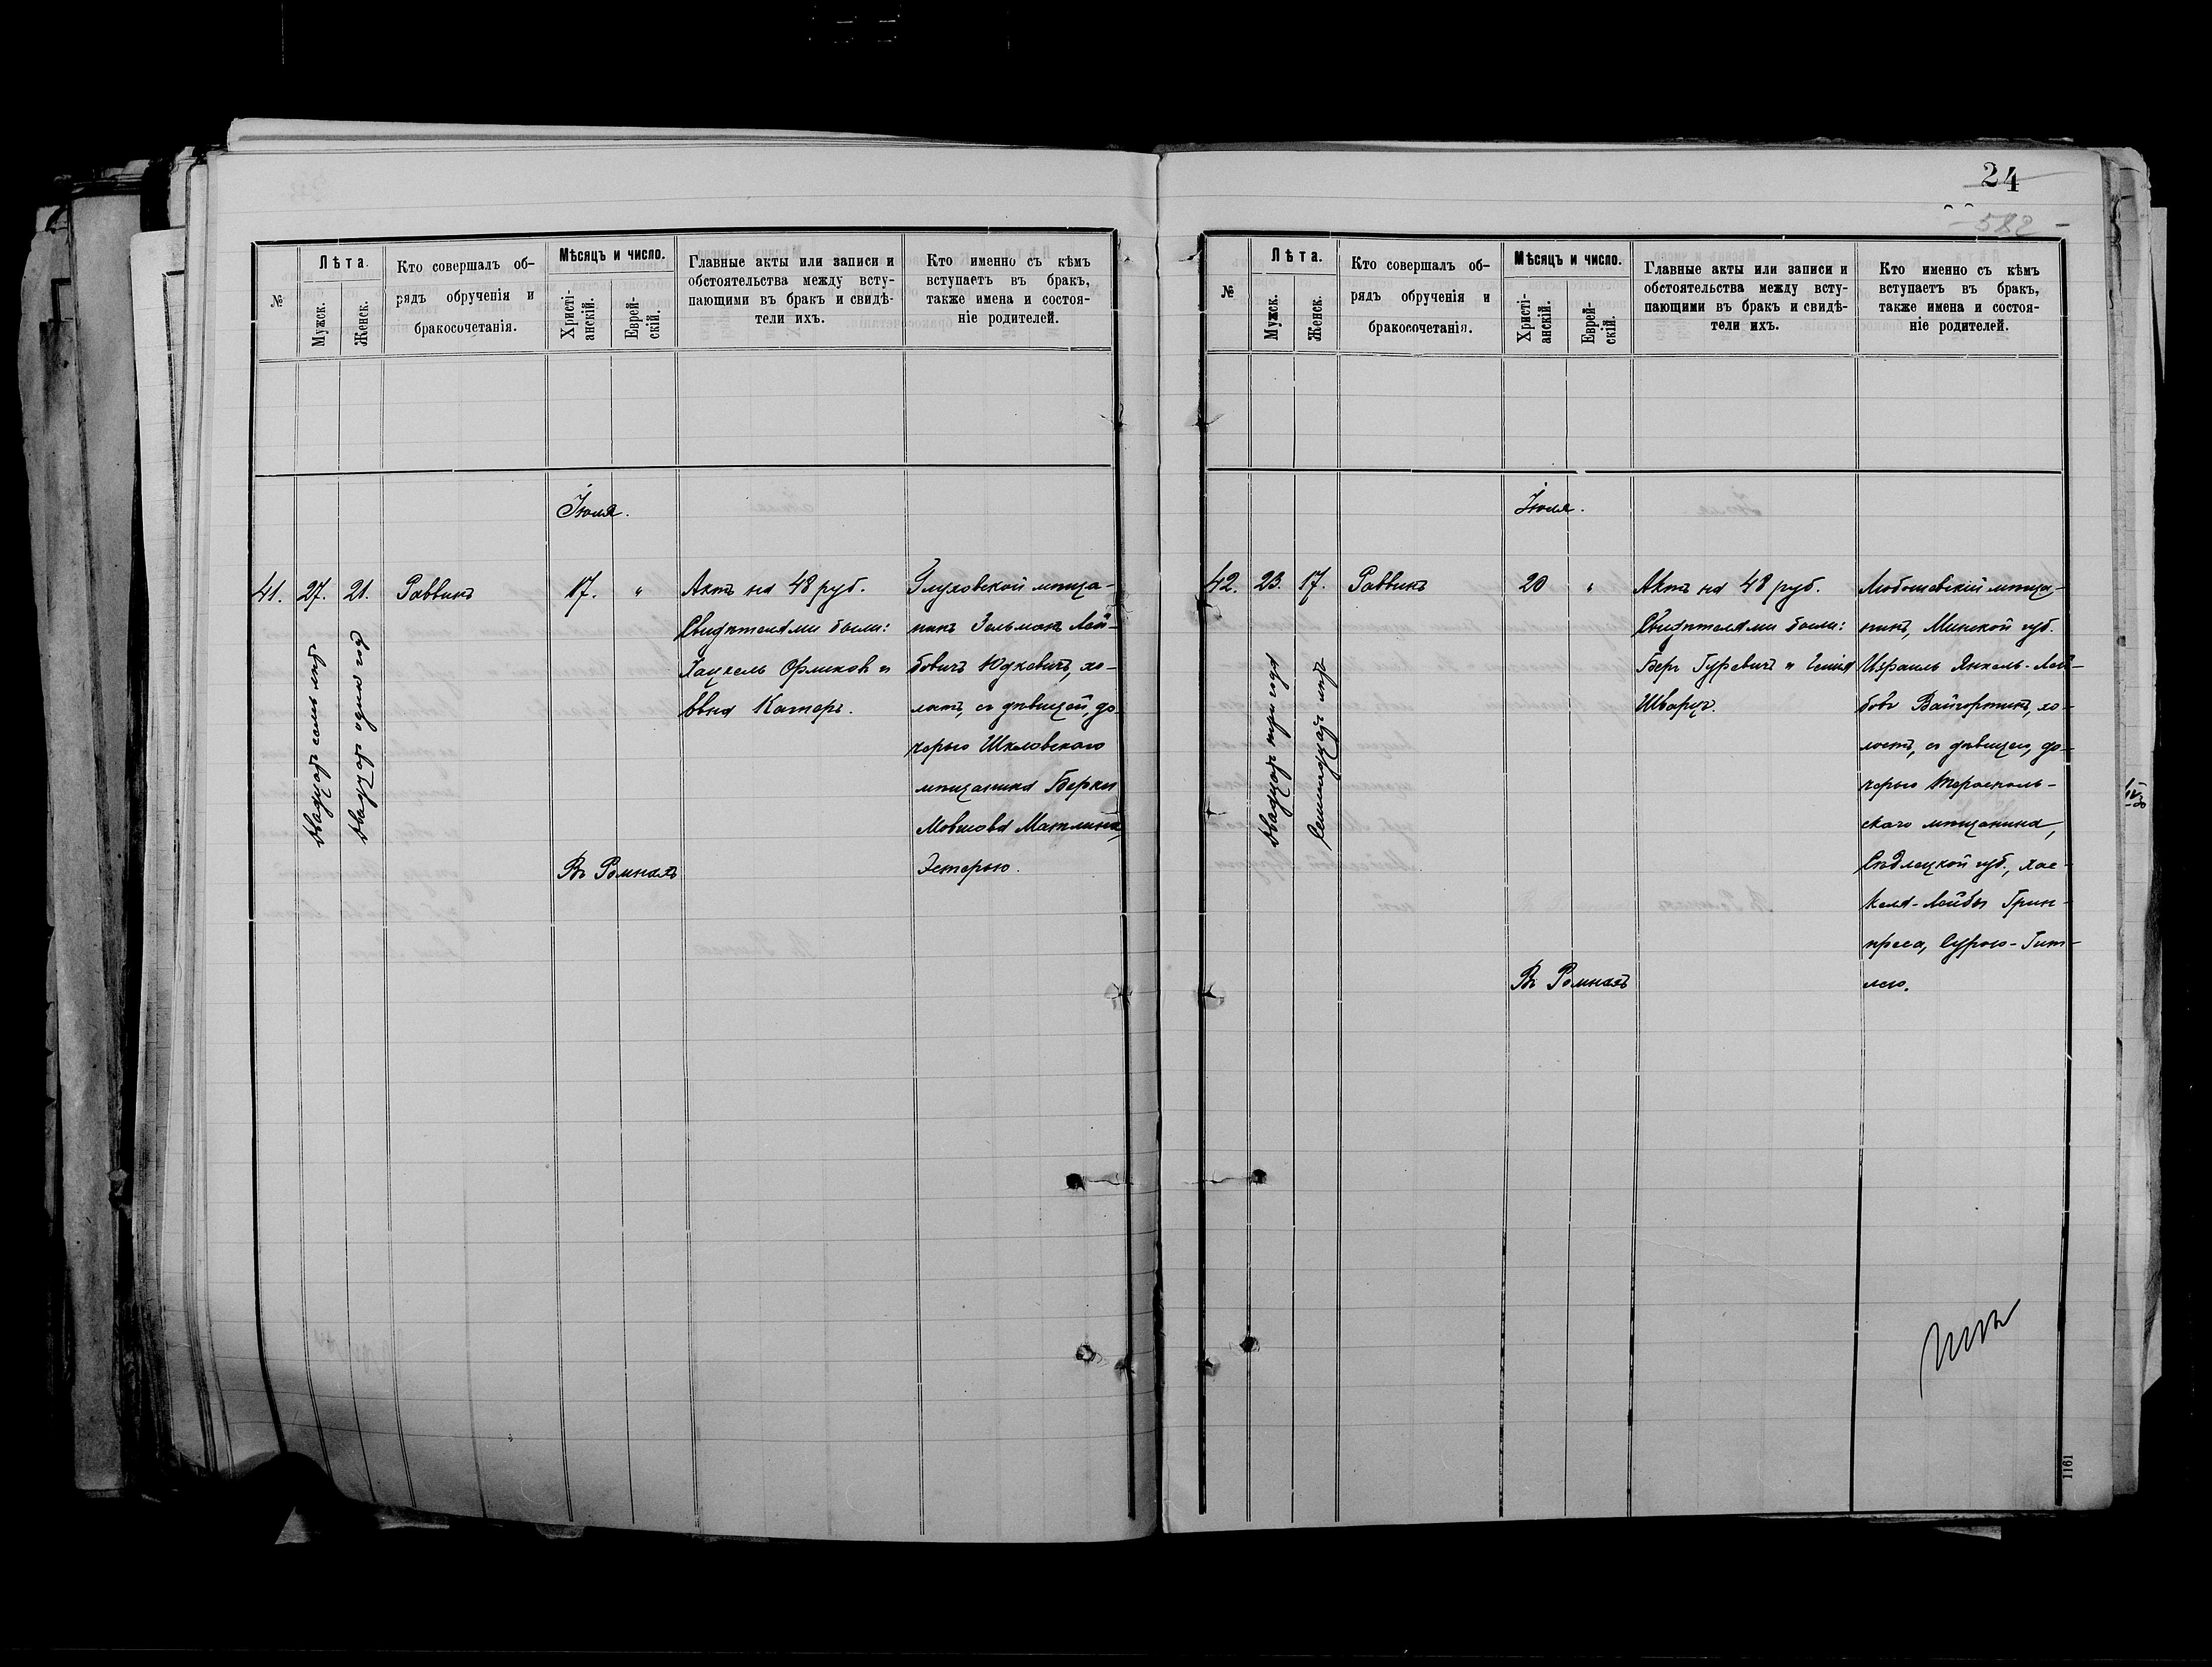 №
Лѣта.
Мужск.
Женск.
Кто совершалъ об-
рядъ обрученія и
бракосочетанія.
Мѣсяцъ и число.
Христі-
анскій.
Еврей-
скій.
Главные акты или записи и
обстоятельства между всту-
пающими въ бракъ и свидѣ-
тели ихъ.
Кто именно съ кѣмъ
вступаетъ въ бракъ,
также имена и состоя-
ніе родителей.
Іюля.
41.
27.
двадцать семь лѣтъ
21.
двадцать одинъ годъ
Раввинъ
17.
"
Въ Ромнахъ
Актъ на 48 руб.
Свидѣтелями были:
Хацкель Орликовъ и
Катеръ.
Глуховской мѣща-
нинъ Зельманъ Лей-
бовичъ Юдкевичъ, хо-
лостъ, съ дѣвицей, до-
черью Шкловскаго
мѣщанина Берки
Мовшова Матлина,
Эстерью.
24
582
№
Лѣта.
Мужск.
Женск.
Кто совершалъ об-
рядъ обрученія и
бракосочетанія.
Мѣсяцъ и число.
Христі-
анскій.
Еврей-
скій.
Главные акты или записи и
обстоятельства между всту-
пающими въ бракъ и свидѣ-
тели ихъ.
Кто именно съ кѣмъ
вступаетъ въ бракъ,
также имена и состоя-
ніе родителей.
Іюля.
42.
23.
двадцать три года
17.
семнадцать лѣтъ
Раввинъ
20
"
Въ Ромнахъ
Актъ на 48 руб.
Свидѣтелями были:
Беръ Гуревичъ и
Шварцъ.
Любошевскій мѣща-
нинъ, Минской губ.
Израиль Янкель-Лей-
бовъ Вайнортинъ, хо-
лостъ, съ дѣвицею, до-
черью Тераспаль-
скаго мѣщанина,
Сѣдлецкой губ., Хас-
келя-Лейбы Грин-
преса, Сурою-Гит-
лею.
1161